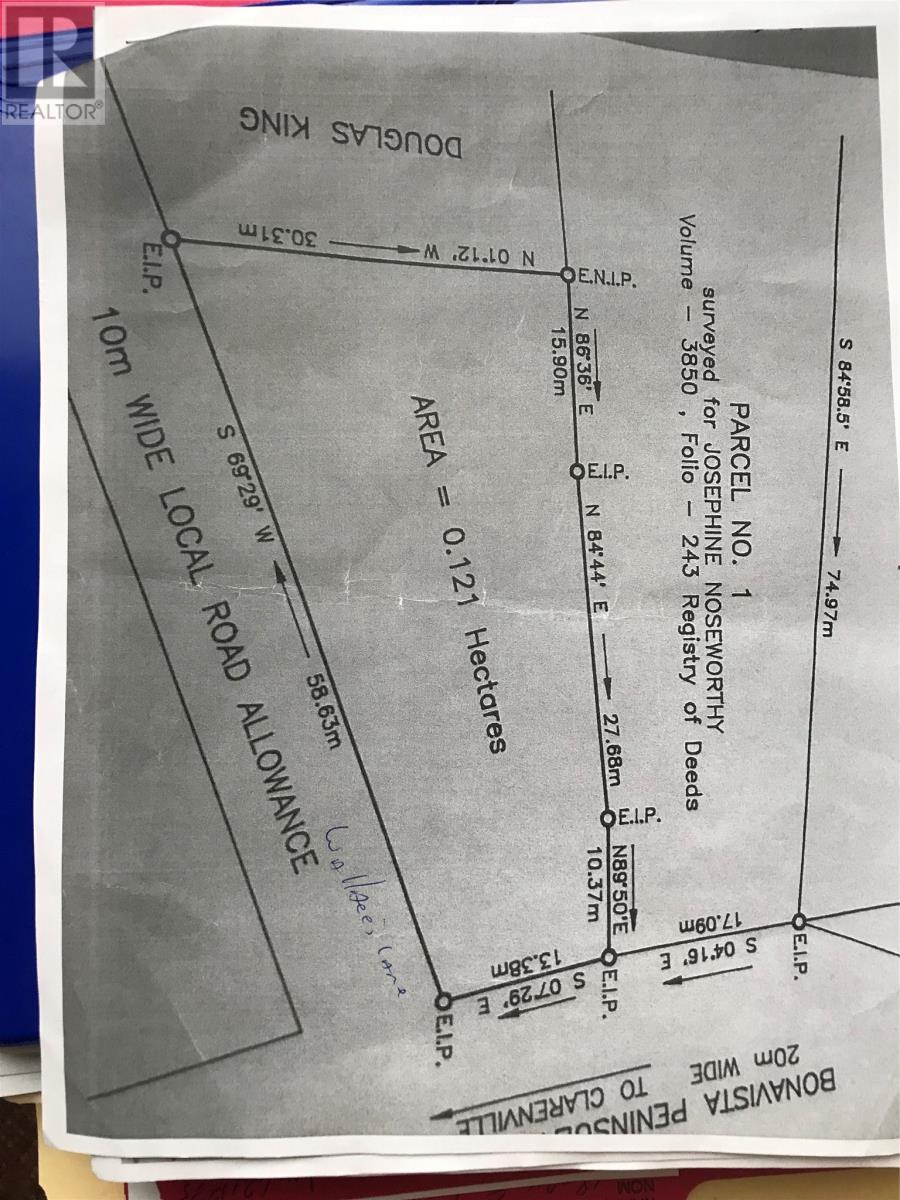 REALTOR®
DOUGLAS KING
N 01°12' W
30.31m
E.I.P.
E.N.I.P.
N 86°36' E
15.90m
E.I.P.
N 84°44' E
27.68m
E.I.P.
N89°50'E
10.37m
PARCEL NO. 1
surveyed for JOSEPHINE NOSEWORTHY
Volume – 3850 , Folio – 243 Registry of Deeds
S 84°58.5' E
74.97m
E.I.P.
17.09m
S 04°16' E
E.I.P.
13.38m
S 07°29' E
E.I.P.
AREA = 0.121 Hectares
S 69°29' W
58.63m
10m WIDE LOCAL ROAD ALLOWANCE
BONAVISTA PENINSUL
20m WIDE
TO CLARENVILLE
NOM